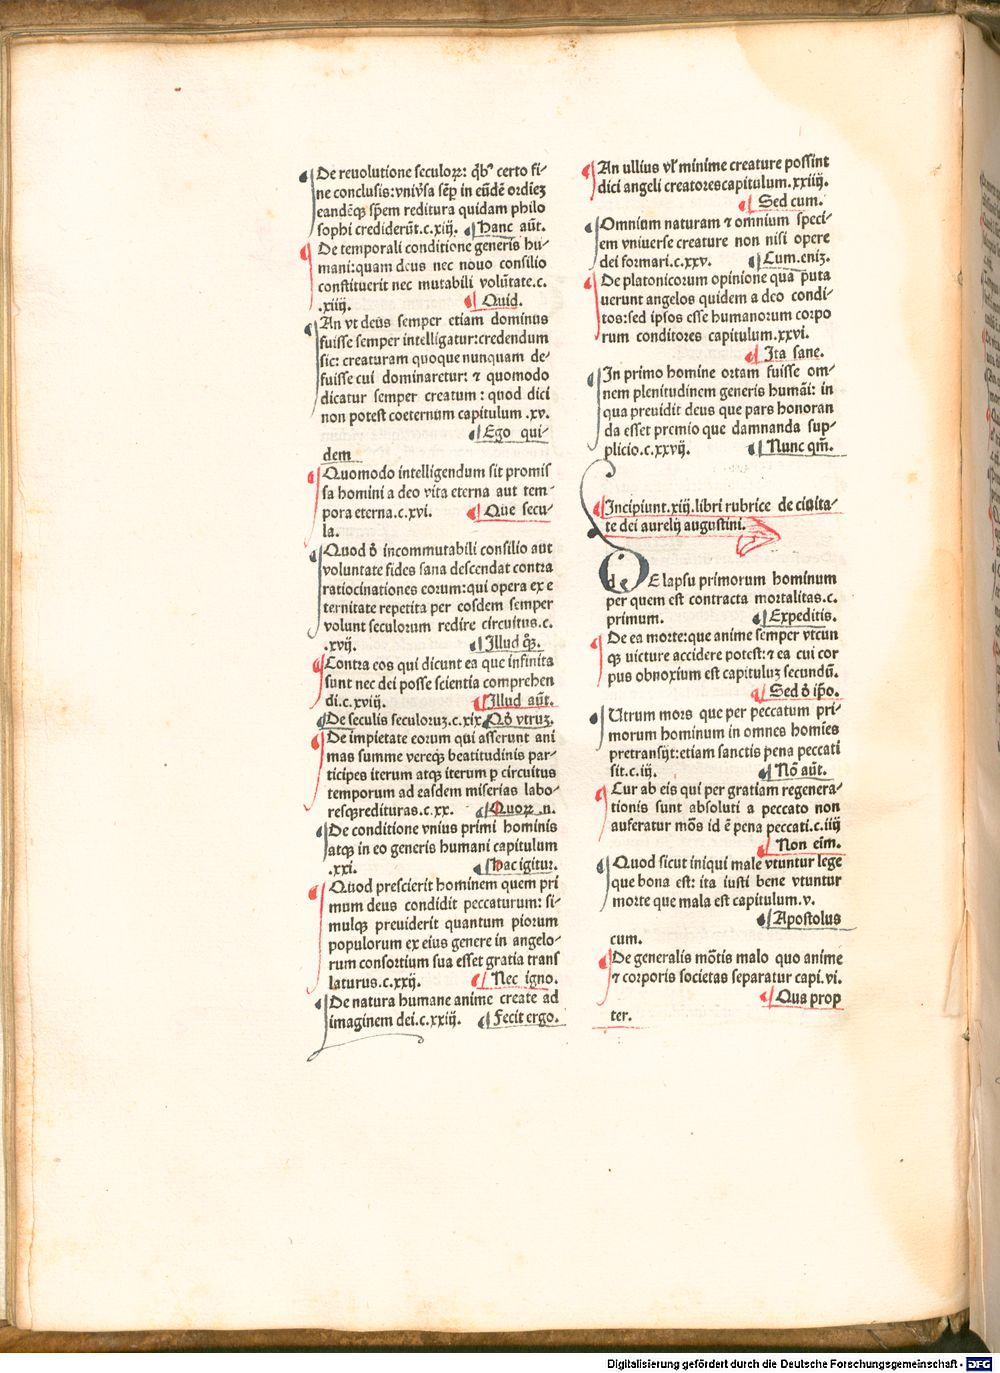 De reuolutione seculoꝝ: qͥbꝰ certo fi⸗
ne conclusis: vniv̾sa sēp̱ in eūdē ordiēꝫ
eandēqꝫ sp̄em reditura quidam philo
sophi crediderūt.c.xiij. Hanc aūt.
De temporali conditione generis hu⸗
mani: quam deus nec nouo consilio
constituerit nec mutabili volūtate.c.
.xiiij. Quid.
An vt deus semper etiam dominus
fuisse semper intelligatur: credendum
sic: creaturam quoque nunquam de⸗
fuisse cui dominaretur: ⁊ quomodo
dicatur semper creatum: quod dici
non potest coeternum capitulum .xv.
Ego qui⸗
dem
Quomodo intelligendum sit promis
sa homini a deo vita eterna aut tem⸗
pora eterna.c.xvi. Que secu⸗
la.
Quod ꝺ̊ incommutabili consilio aut
voluntate fides sana descendat contra
ratiocinationes eorum: qui opera ex e
ternitate repetita per eosdem semper
volunt seculorum redire circuitus.c.
.xvij. Illud qͦqꝫ.
Contra eos qui dicunt ea que infinita
sunt nec dei posse scientia comprehen
di.c.xviij. Illud aūt.
De seculis seculoruꝫ.c.xix. Qꝺ̊ vtruꝫ.
De impietate eorum qui asserunt ani
mas summe vereqꝫ beatitudinis par⸗
ticipes iterum atqꝫ iterum ꝑ circuitus
temporum ad easdem miserias labo⸗
resqꝫ redituras.c.xx. Quoꝝ .n.
De conditione vnius primi hominis
atqꝫ in eo generis humani capitulum
.xxi. Hac igitur.
Quod prescierit hominem quem pri
mum deus condidit peccaturum: si⸗
mulqꝫ preuiderit quantum piorum
populorum ex eius genere in angelo⸗
rum consortium sua esset gratia trans
laturus.c.xxij. Nec igno.
De natura humane anime create ad
imaginem dei.c.xxiij. Fecit ergo.
An ullius vł minime creature possint
dici angeli creatores capitulum.xxiiij.
Sed cum.
Omnium naturam ⁊ omnium speci⸗
em vniuerse creature non nisi opere
dei formari.c.xxv. Cum.eniꝫ.
De platonicorum opinione qua puta
uerunt angelos quidem a deo condi⸗
tos: sed ipsos esse humanorum corpo
rum conditores capitulum.xxvi.
Ita sane.
In primo homine ortam fuisse om⸗
nem plenitudinem generis humāi: in
qua preuidit deus que pars honoran
da esset premio que damnanda sup⸗
plicio.c.xxvij. Nunc qm̄.
Incipiunt.xiij.libri rubrice de ciuita⸗
te dei aurelij augustini.
DE lapsu primorum hominum
per quem est contracta mortalitas.c.
primum. Expeditis.
De ea morte: que anime semper vtcun
qꝫ uicture accidere potest: ⁊ ea cui cor
pus obnoxium est capituluꝫ secundū.
Sed ꝺ̊ ip̄o.
Utrum mors que per peccatum pri⸗
morum hominum in omnes homīes
pretransijt: etiam sanctis pena peccati
sit.c.iij. Nō aūt.
Cur ab eis qui per gratiam regenera⸗
tionis sunt absoluti a peccato non
auferatur mōs id ē pena peccati.c.iiij
Non eīm.
Quod sicut iniqui male vtuntur lege
que bona est: ita iusti bene vtuntur
morte que mala est capitulum.v.
Apostolus
cum.
De generalis mōtis malo quo anime
⁊ corporis societas separatur capi.vi.
Qua prop
ter.
Digitalisierung gefördert durch die Deutsche Forschungsgemeinschaft - DFG